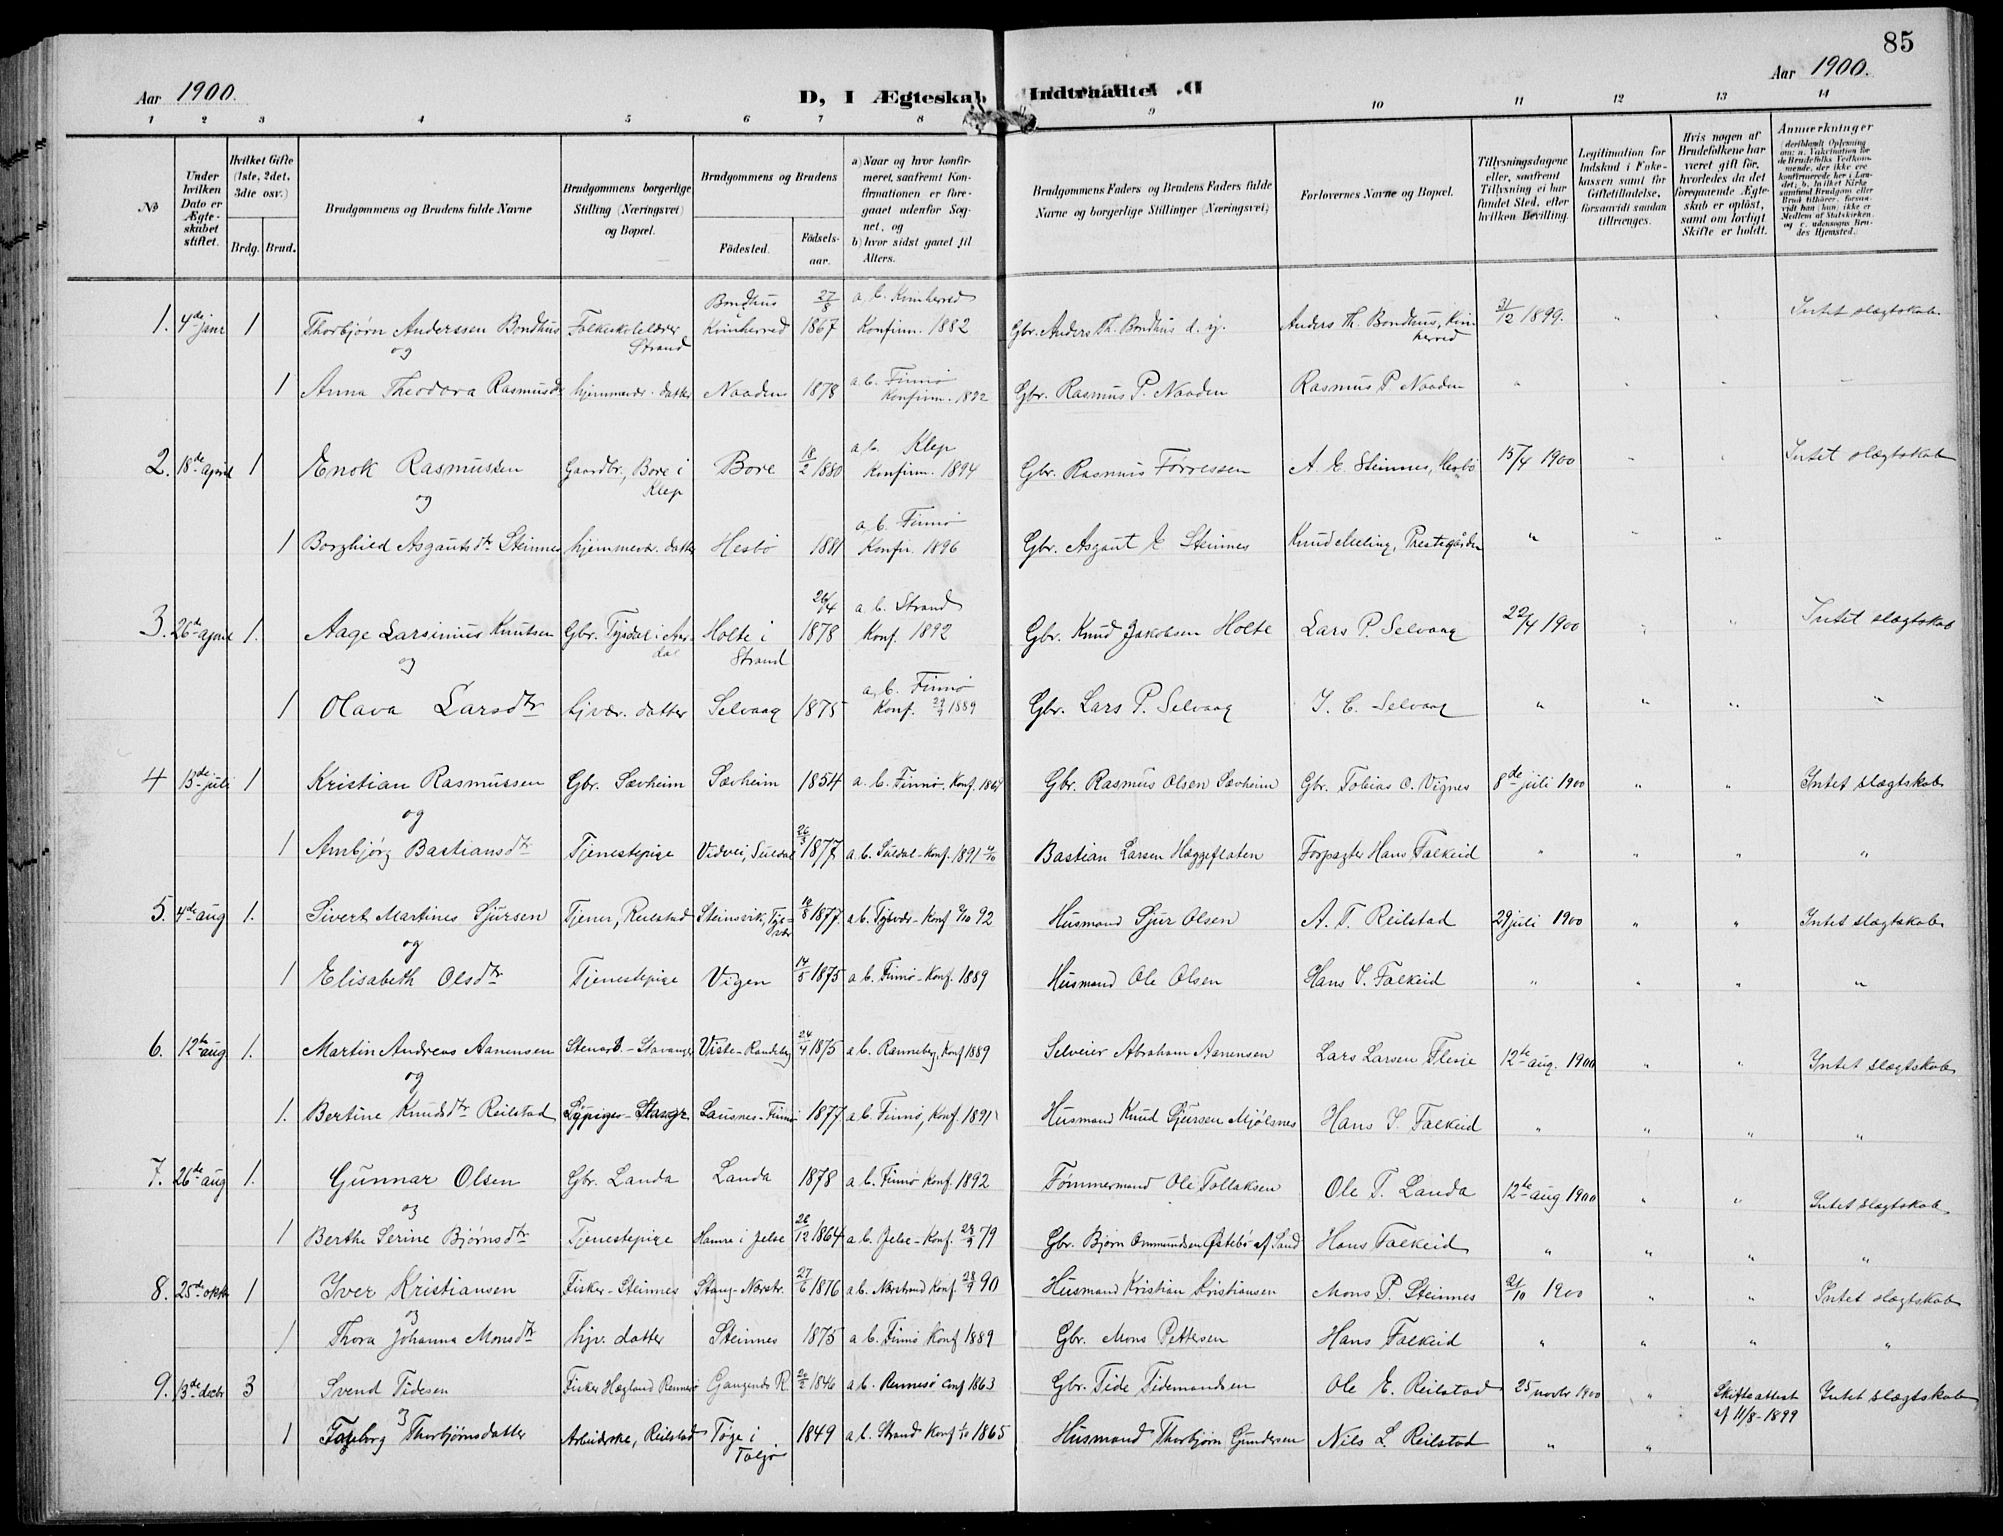 85
Aar 1900.
D, I Ægteskab Indtraadte. D.
Aar 1900.
1 2 3 4 5 6 7 8 9 10 11 12 13 14
№
Under hvilken Dato er Ægteskabet stiftet.
Hvilket Gifte (1ste, 2det, 3die osv.)
Brdg. Brud.
Brudgommens og Brudens fulde Navne
Brudgommens borgerlige Stilling (Næringsvei) og Bopæl.
Brudgommens og Brudens
Fødested.
Fødselsaar.
a) Naar og hvor konfirmeret, saafremt Konfirmationen er foregaaet udenfor Sognet, og
b) hvor sidst gaaet til Alters.
Brudgommens Faders og Brudens Faders fulde Navne og borgerlige Stillinger (Næringsvei)
Forlovernes Navne og Bopæl.
Tillysningsdagene eller, saafremt Tillysning ei har fundet Sted, efter hvilken Bevilling.
Legitimation for Indskud i Enkekassen samt for Giftetilladelse, forsaavidt saadan tiltrænges.
Hvis nogen af Brudefolkene har været gift før, hvorledes da det foregaaende Ægteskab er opløst, samt om lovligt Skifte er holdt.
Anmærkninger
1. 4de janr 1 Thorbjørn Anderssen Bondhus Folkeskolelærer Strand Bondhus Kvinherred 27/8 1867 a. b. Kvinherred Konfirm. 1882 Gbr. Anders Th. Bondhus d. y. Anders Th. Bondhus, Kvinherred 31/12 1899. " " Intet slægtskab
og
1 Anna Theodora Rasmusdtr hjemmevær. datter Naaden 1878 a. b. Finnø Konfirm. 1892 Gbr. Rasmus P. Naaden Rasmus P Naaden " " " –
2. 18de april 1 Enok Rasmussen Gaardbr., Bore i Klep Bore 18/2 1880 a. b. Klep Konfirm. 1894 Gbr. Rasmus Tørressen A. E. Steinnes, Hesbø 15/4 1900 " " Intet slægtskab
og
1 Borghild Asgautsdtr Steinnes hjemmevær. datter Hesbø 1881 a. b. Finnø Konfir. 1896 Gbr. Asgaut E Steinnes Knud Meling, Prestegården " " "
3. 26de april 1. Aage Larsinius Knutsen Gbr. Tysdal i Årdal Holte i Strand 26/4 1878 a. b. Strand Konf. 1892 Gbr. Knud Jakobsen Holte Lars P. Selvaag 22/4 1900 " " Intet slægtskab
og
1 Olava Larsdtr hjvær. datter Selvaag 1875 a. b. Finnø Konf. 1889 Gbr. Lars P. Selvaag I. C. Selvaag " " " "
4 13de juli 1 Kristian Rasmussen Gbr. Sævheim Sævheim 1854 a. b. Finnø. Konf. 1869 Gbr. Rasmus Olsen Sævheim Gbr. Tobias O. Vignes 8de juli 1900 " " Intet slægtskab
og
1 Ambjørg Bastiansdtr Tjenestepige Vidvei, Suldal 26/3 1877 a. b. Suldal – Konf. 1891 Bastian Larsen Hæggeflaten Forpagter Hans Falkeid " " " "
5. 4de aug 1. Sivert Martines Sjursen Tjener, Reilstad Steinsvik, Tysvær 16/8 1877. a. b. Tysvær – Konf 92 Husmand Sjur Olsen A. T. Reilstad 29 juli 1900 " " Intet slægtskab
og
1 Elisabeth Olsdtr Tjenestepige Vigen 14/5 1875 a. b. Finnø – Konf. 1889 Husmand Ole Olsen Hans I. Falkeid " " " "
6. 12te aug 1. Martin Andreas Aanensen Stenarb. – Stavanger Viste – Randeberg 24/4 1875 a. b. Ranneberg, Konf 1889 Selveier Abraham Aanensen Lars Larsen Flesje 12te aug. 1900 " " Intet slægtskab
og
1. Bertine Knudsdtr Reilstad Sypige – Stavgr Lausnes – Finnø 1877. a. b. Finnø, Konf. 1891 Husmand Knud Sjursen Mjølsnes Hans I. Falkeid " " " "
7. 26de aug 1. Gunnar Olsen Gbr. Landa Landa 1878 a. b. Finnø Konf. 1892 Tømmermand Ole Tollaksen Ole T. Landa 12te aug 1900 " " Intet slægtskab
og
1 Berthe Serine Bjørnsdtr Tjenestepige Hamre i Jelse 26/12 1864 a. b. Jelse – Konf. 28/9 79 Gbr. Bjørn Ommundsen Østebø af Sand Hans Falkeid " " " "
8. 25de oktbr 1 Iver Kristiansen Fisker – Steinnes Stang – Nærstr. 27/6 1876 a. b. Nærstrand Konf 28/9 90 Husmand Kristian Kristiansen Mons P. Steinnes 21/10 1900 " " Intet slægtskab
og
1 Thora Johanna Monsdtr hjv. datter Steinnes 1875 a. b. Finnø Konf 1889 Gbr. Mons Pettersen Hans Falkeid " " " "
9. 13de decbr 3 Svend Tidesen Fisker Hægland Rennesø 1846 a. b. Rennesø Conf 1863 Gbr. Tide Tidemandsen Ole E. Reilstad 25 novbr 1900 " Skifteattest af 11/8 – 1899 Intet slægtskab
og
1 Thorbjørnsdatter Arbeiderske, Reilstad Tøge i 1849 a. b. Strand Konf 1865 Husmand Thorbjørn Gundersen Nils L. Reilstad " "